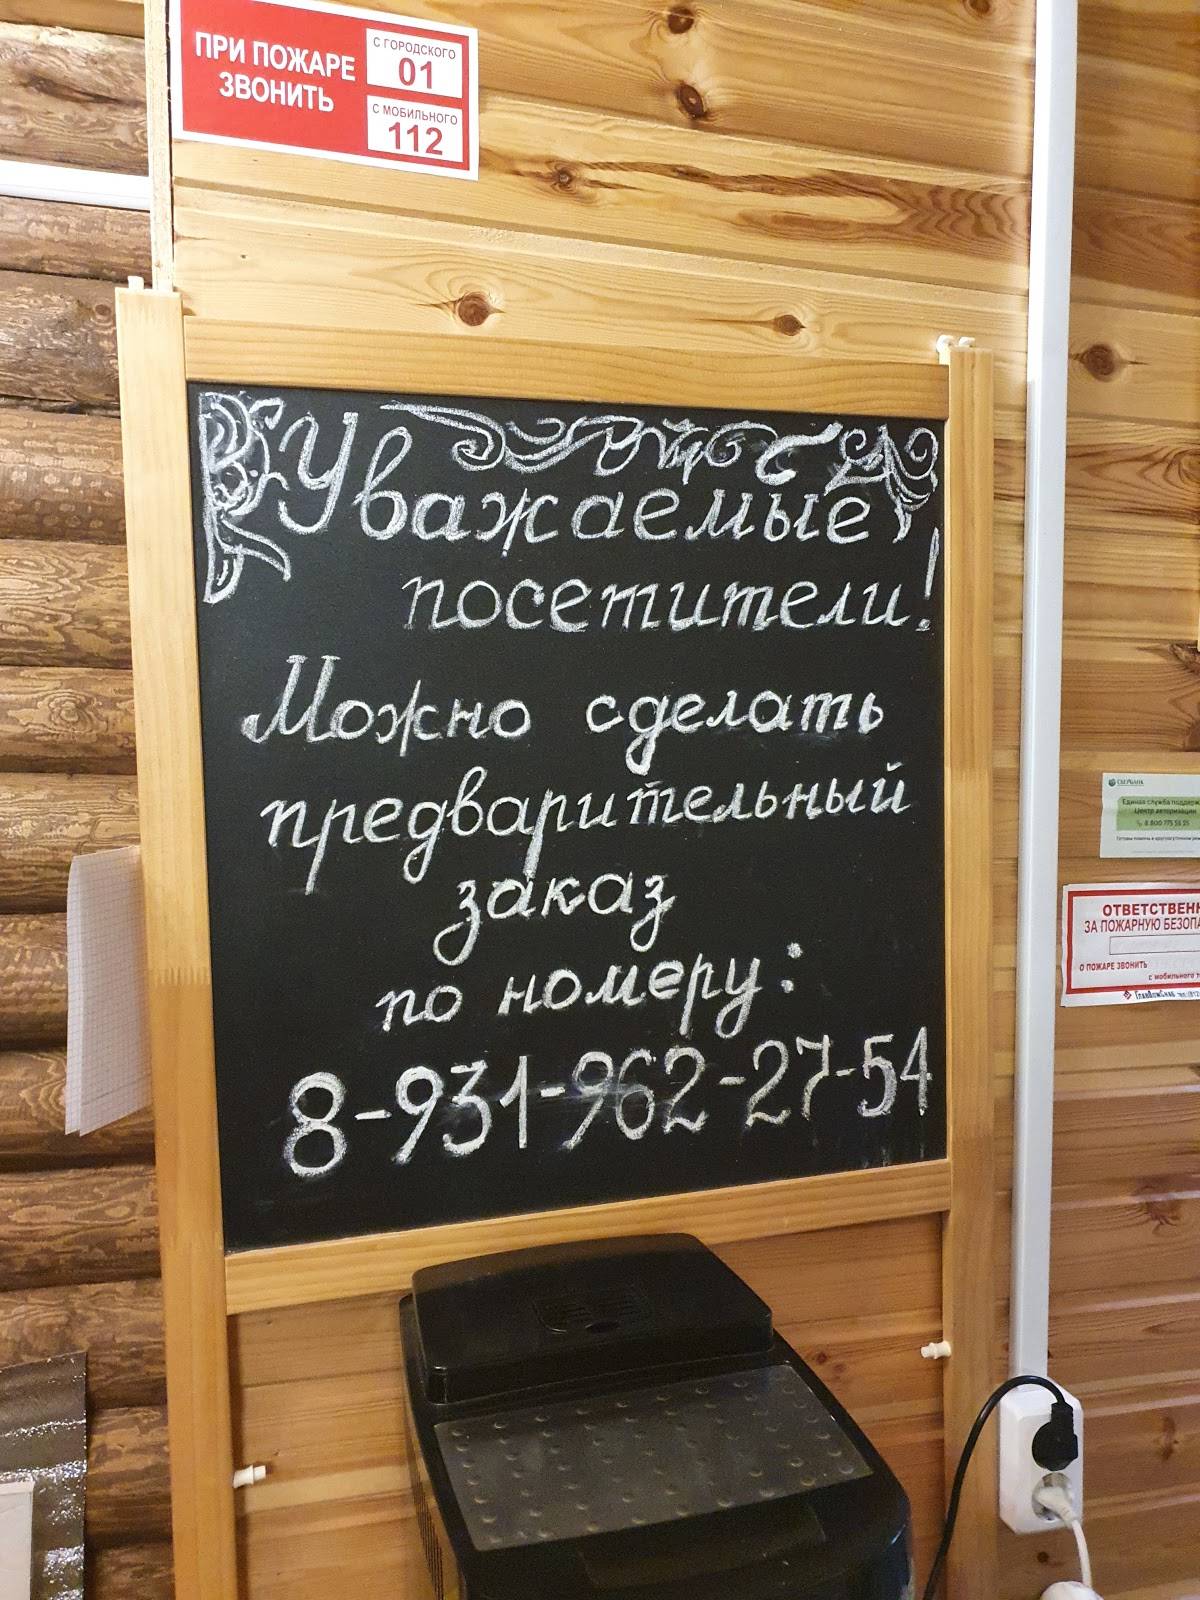 ПРИ ПОЖАРЕ
ЗВОНИТЬ
С ГОРОДСКОГО
01
С МОБИЛЬНОГО
112
Уважаемые
посетители!
Можно сделать
предварительный
заказ
по номеру:
8-931-962-27-54
СБЕРБАНК
Единая служба поддерж
Центр авторизации
8 800 775 55 55
ОТВЕТСТВЕНН
ЗА ПОЖАРНУЮ БЕЗОПА
О ПОЖАРЕ ЗВОНИТЬ
с мобильного т